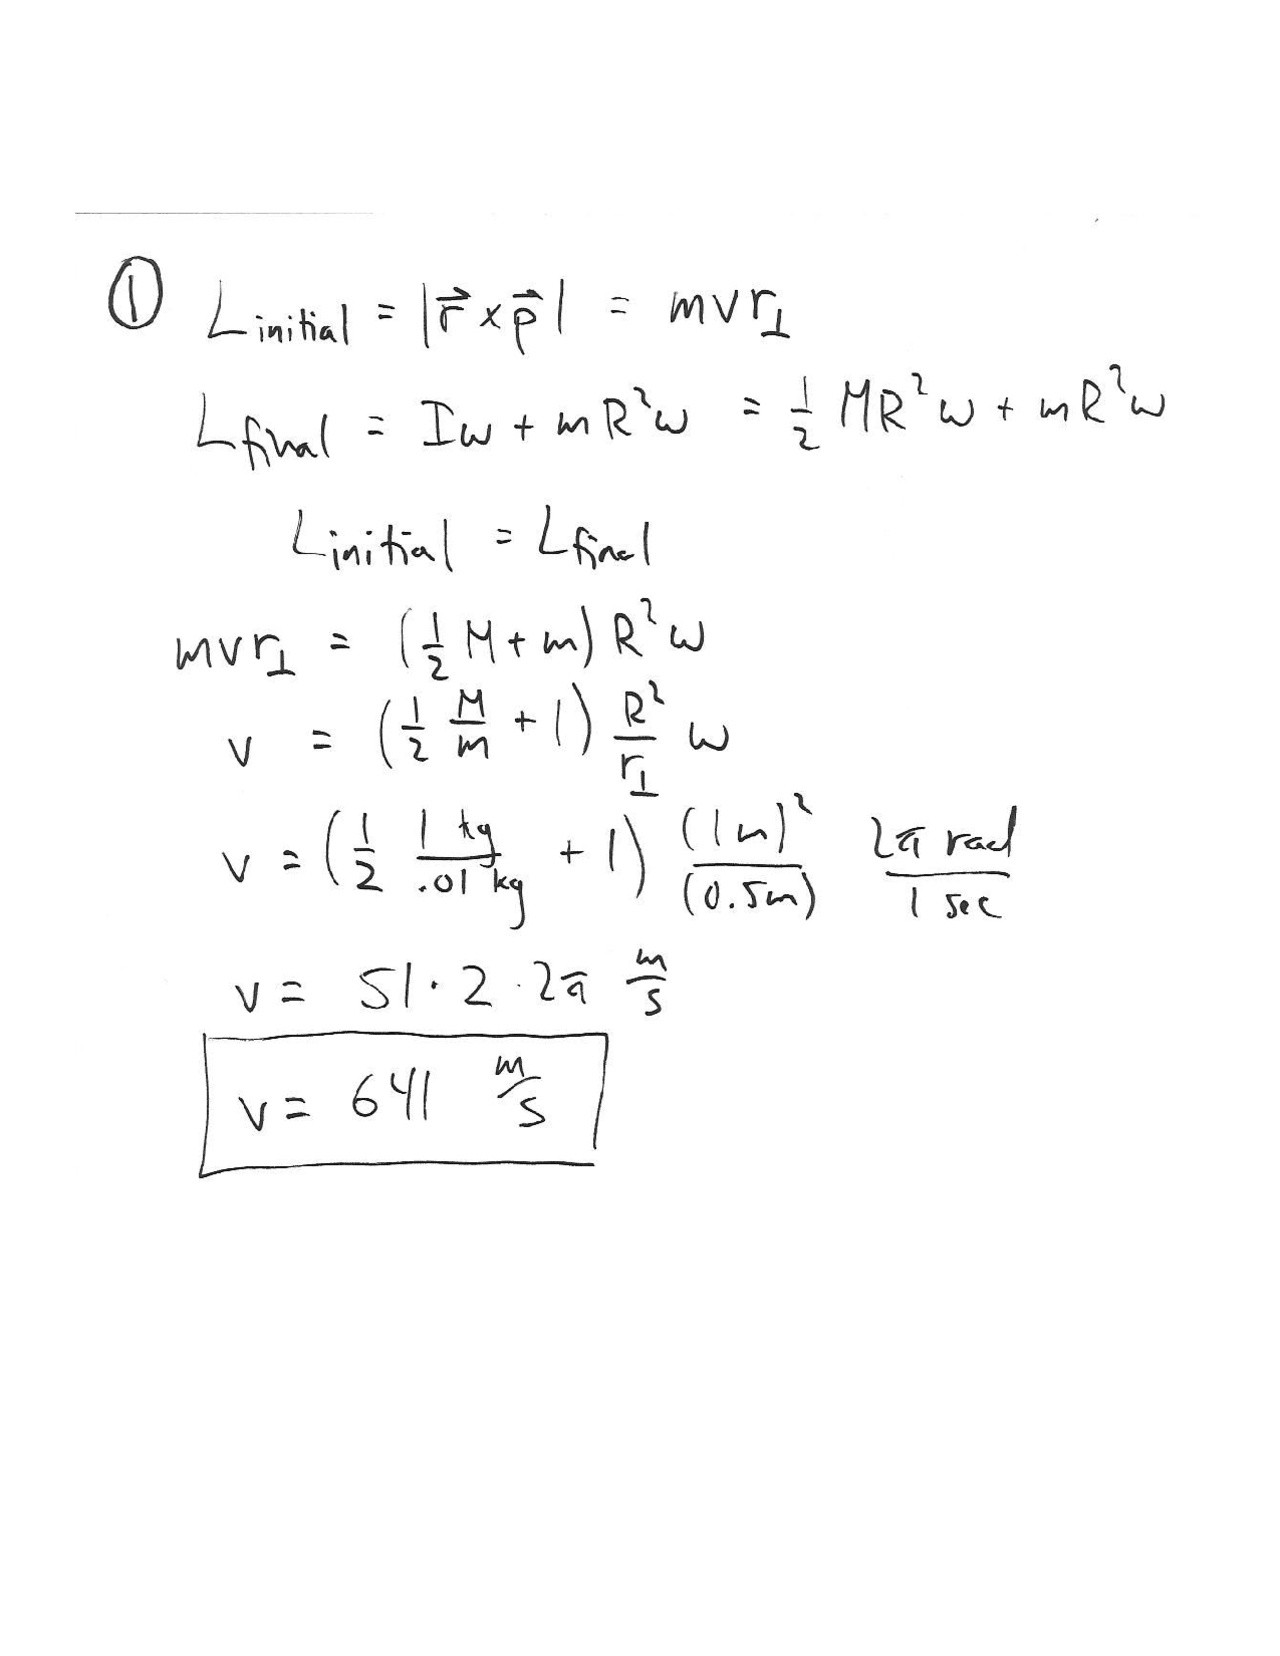 ① L initial = |r⃗ × p⃗| = mvr⊥
L final = Iω + mR²ω = 1/2 MR²ω + mR²ω
L initial = L final
mvr⊥ = (1/2 M + m) R²ω
v = (1/2 M/m + 1) R²/r⊥ ω
v = (1/2 1 kg/.01 kg + 1) (1m)²/(0.5m) 2π rad/1 sec
v = 51 · 2 · 2π m/s
v = 641 m/s